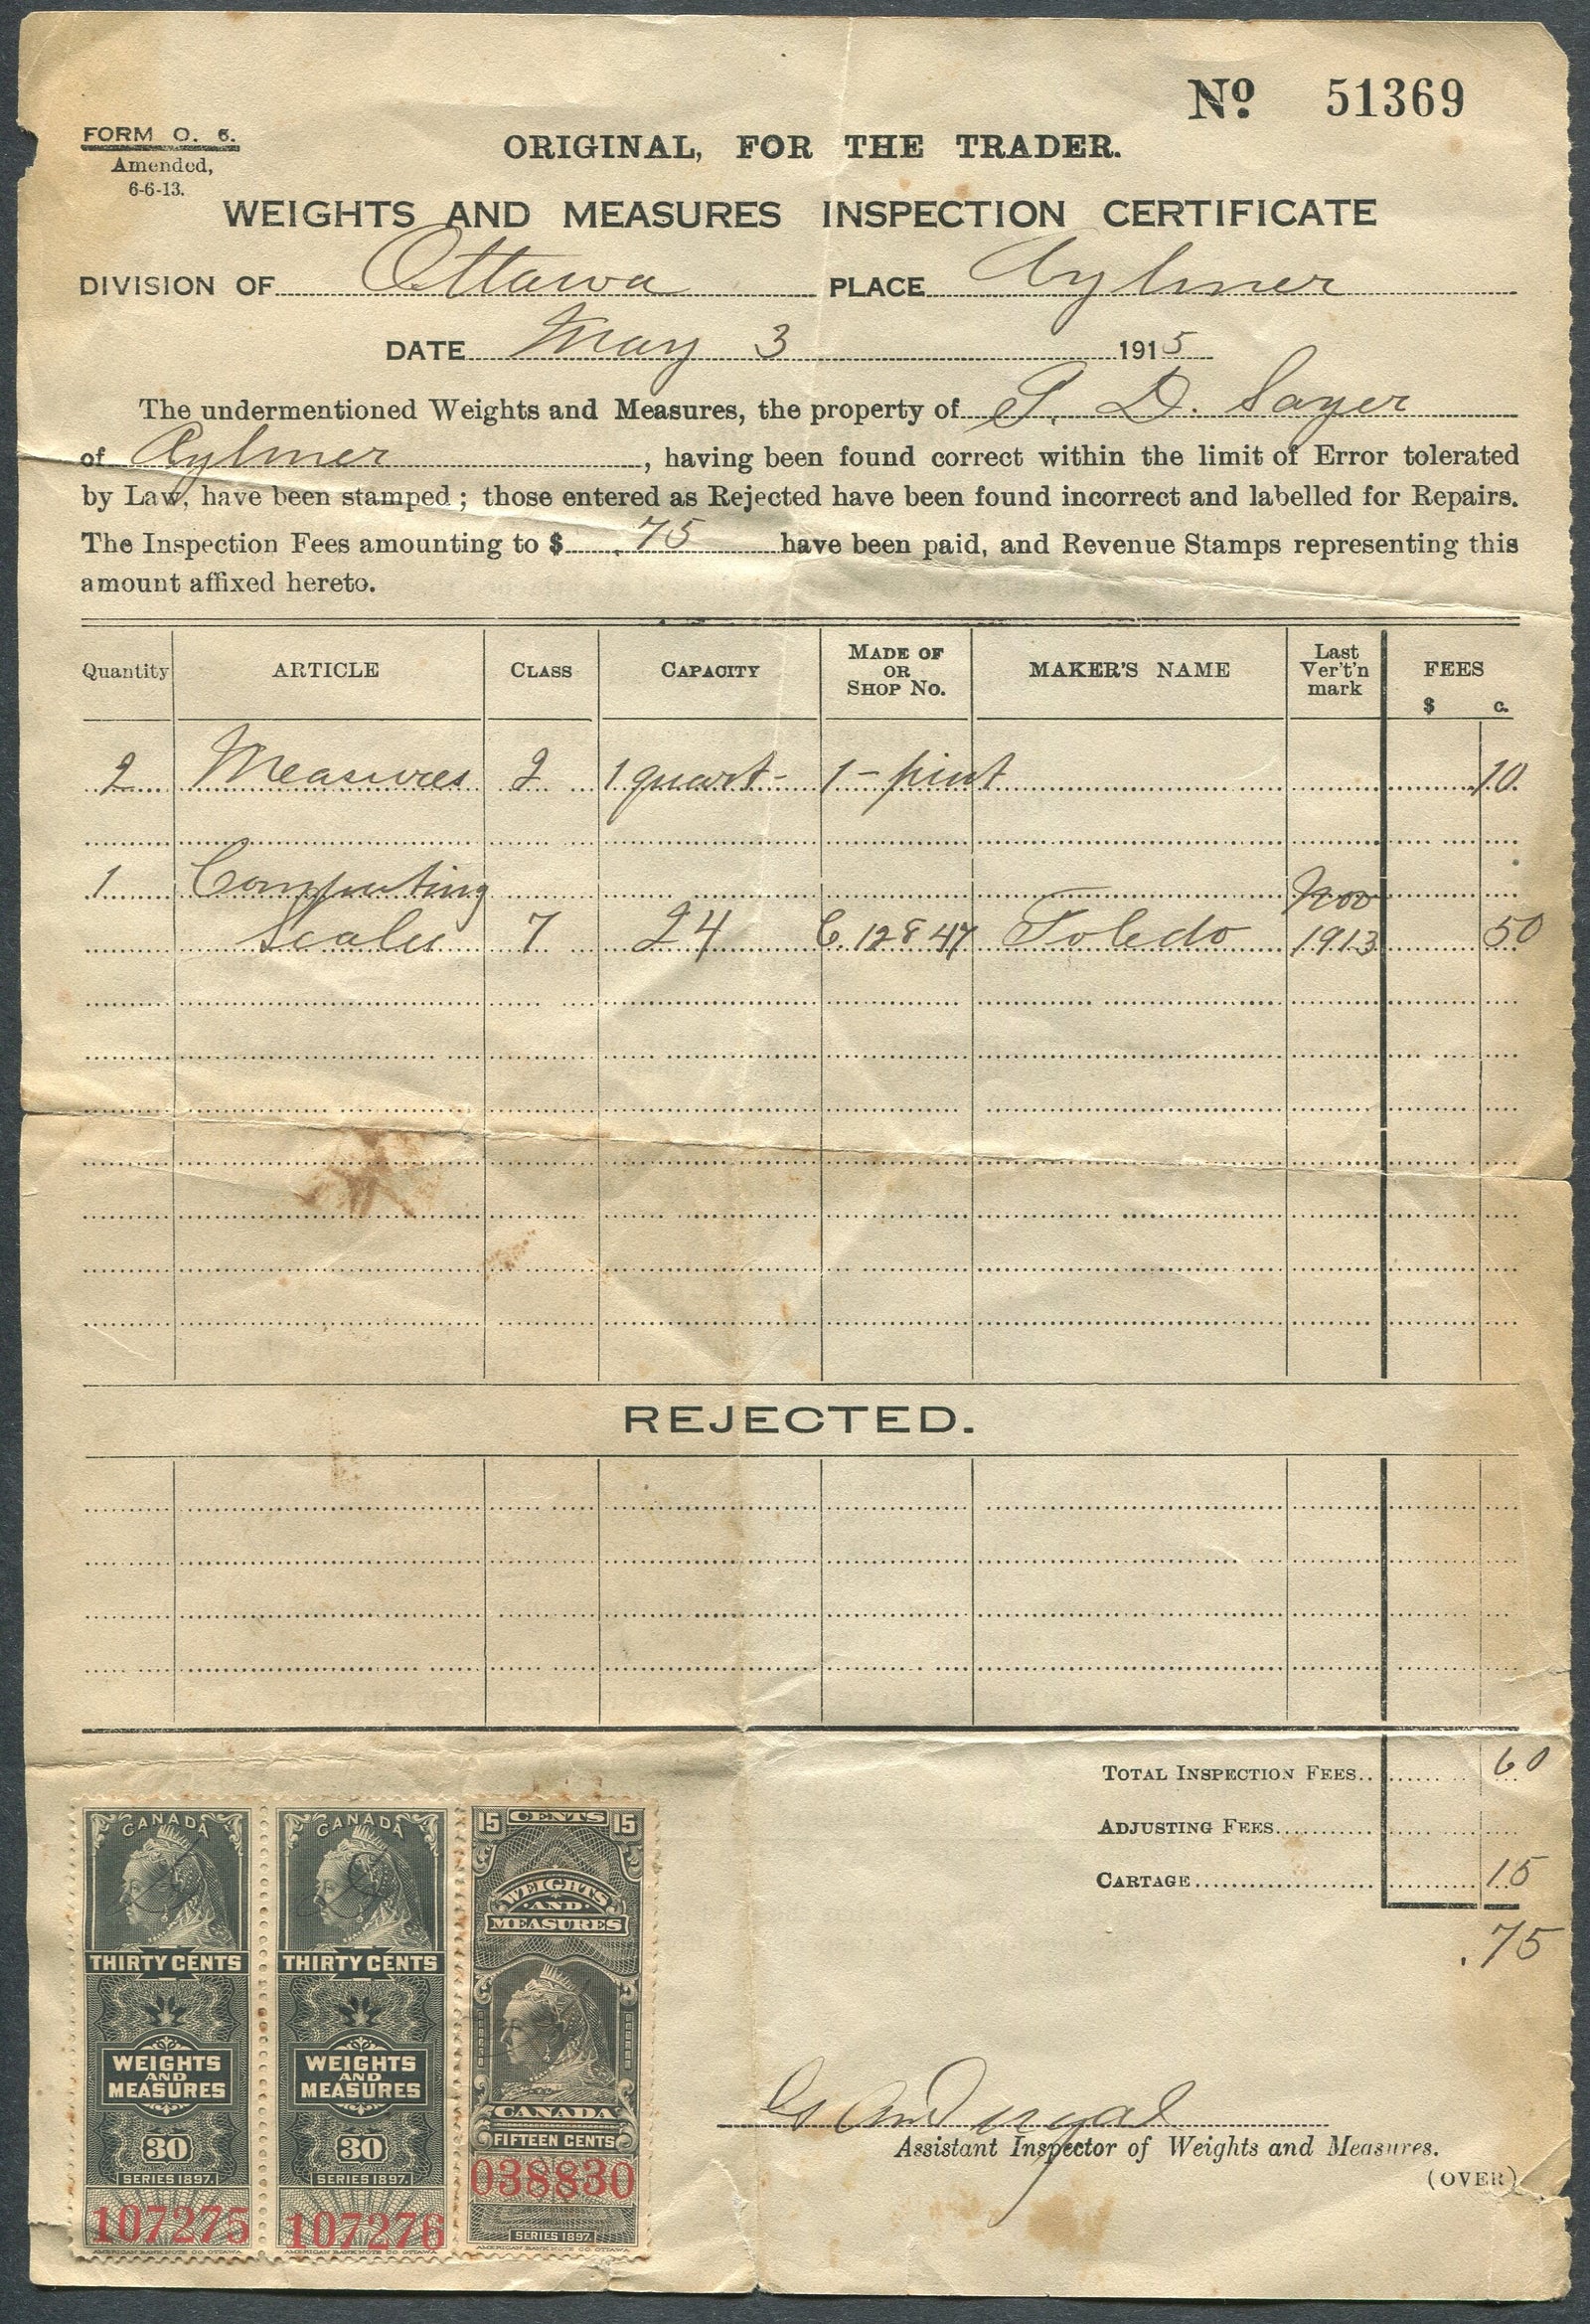 No 51369
FORM O. 6.
Amended,
6-6-13.
ORIGINAL, FOR THE TRADER.
WEIGHTS AND MEASURES INSPECTION CERTIFICATE
DIVISION OF Ottawa PLACE Aylmer
DATE May 3 1915
The undermentioned Weights and Measures, the property of P. D. Sayer
of Aylmer, having been found correct within the limit of Error tolerated
by Law, have been stamped; those entered as Rejected have been found incorrect and labelled for Repairs.
The Inspection Fees amounting to $ .75 have been paid, and Revenue Stamps representing this
amount affixed hereto.
Quantity ARTICLE CLASS CAPACITY MADE OF OR SHOP No. MAKER'S NAME Last Ver't'n mark FEES $ c.
2 Measures 2 1 quart- 1- pint 10
1 Computing Nov
Scales 7 24 C. 12847 Toledo 1913 50
REJECTED.
TOTAL INSPECTION FEES 60
ADJUSTING FEES
CARTAGE 15
.75
Assistant Inspector of Weights and Measures.
(OVER)
CANADA
THIRTY CENTS
WEIGHTS
AND
MEASURES
30
SERIES 1897.
107275
AMERICAN BANK NOTE CO. OTTAWA
CANADA
THIRTY CENTS
WEIGHTS
AND
MEASURES
30
SERIES 1897.
107276
AMERICAN BANK NOTE CO. OTTAWA
15 CENTS 15
WEIGHTS
AND
MEASURES
CANADA
FIFTEEN CENTS
038830
SERIES 1897.
AMERICAN BANK NOTE CO. OTTAWA